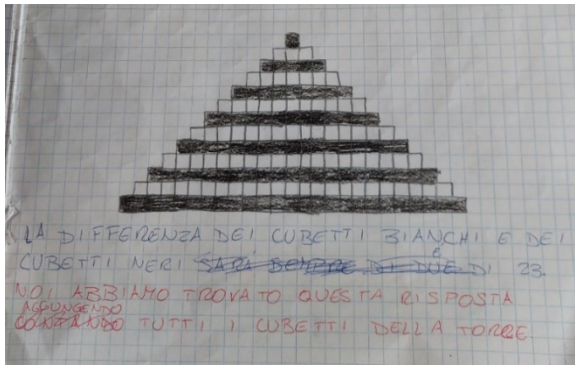 LA DIFFERENZA DEI CUBETTI BIANCHI E DEI
CUBETTI NERI SARÀ SEMPRE DI DUE È DI 23.
NOI ABBIAMO TROVATO QUESTA RISPOSTA
AGGIUNGENDO
CONTANDO TUTTI I CUBETTI DELLA TORRE